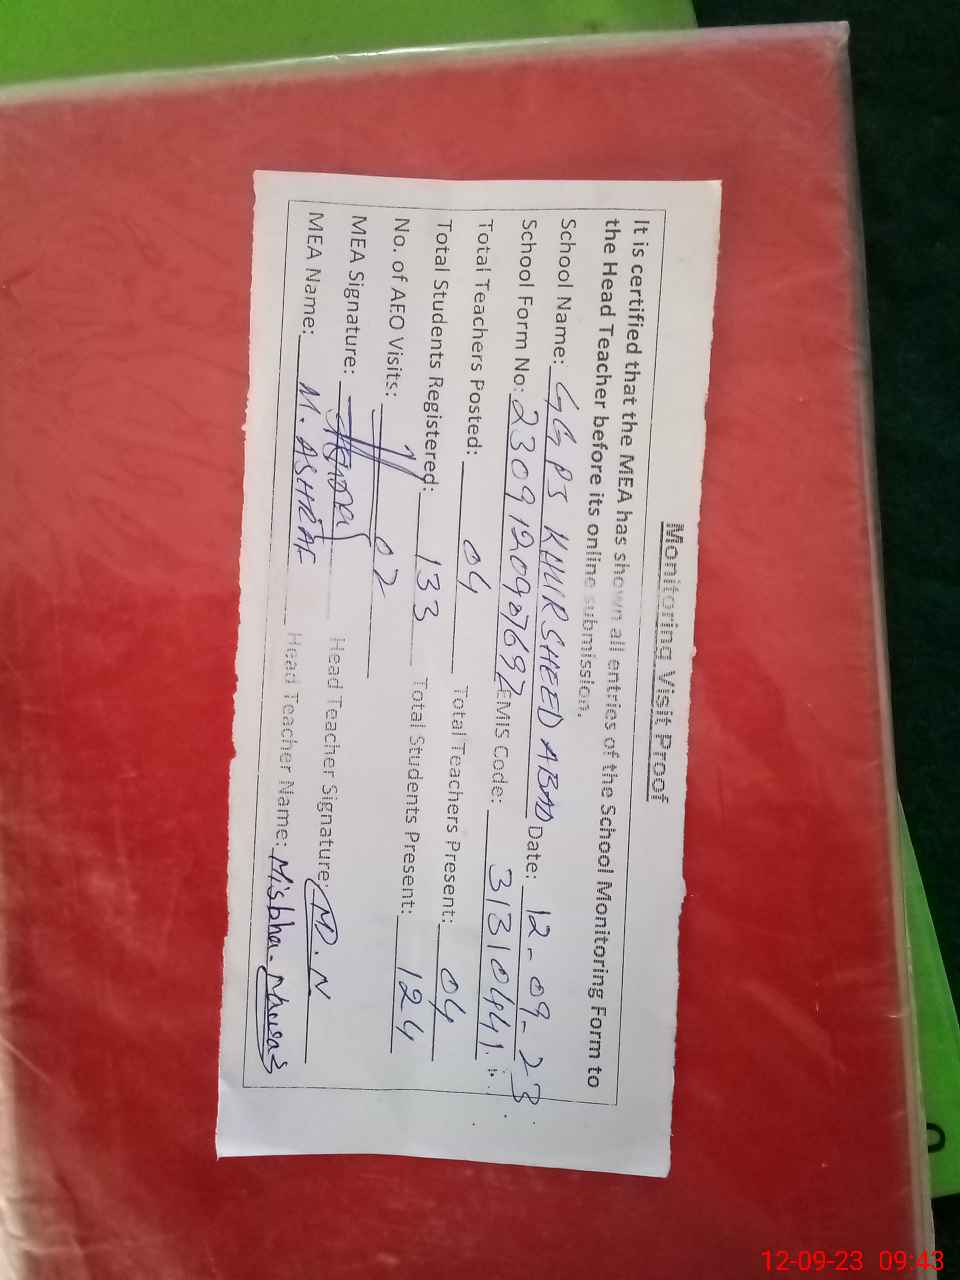 Monitoring Visit Proof
It is certified that the MEA has shown all entries of the School Monitoring Form to
the Head Teacher before its online submission.
School Name: GGPS KHURSHEED ABAD Date: 12-09-23
School Form No: 2309120907692 EMIS Code: 31310441
Total Teachers Posted: 04 Total Teachers Present: 04
Total Students Registered: 133 Total Students Present: 124
No. of AEO Visits: 02
MEA Signature: Head Teacher Signature: MD.N
MEA Name: M. ASHRAF Head Teacher Name: Misbha
12-09-23 09:43